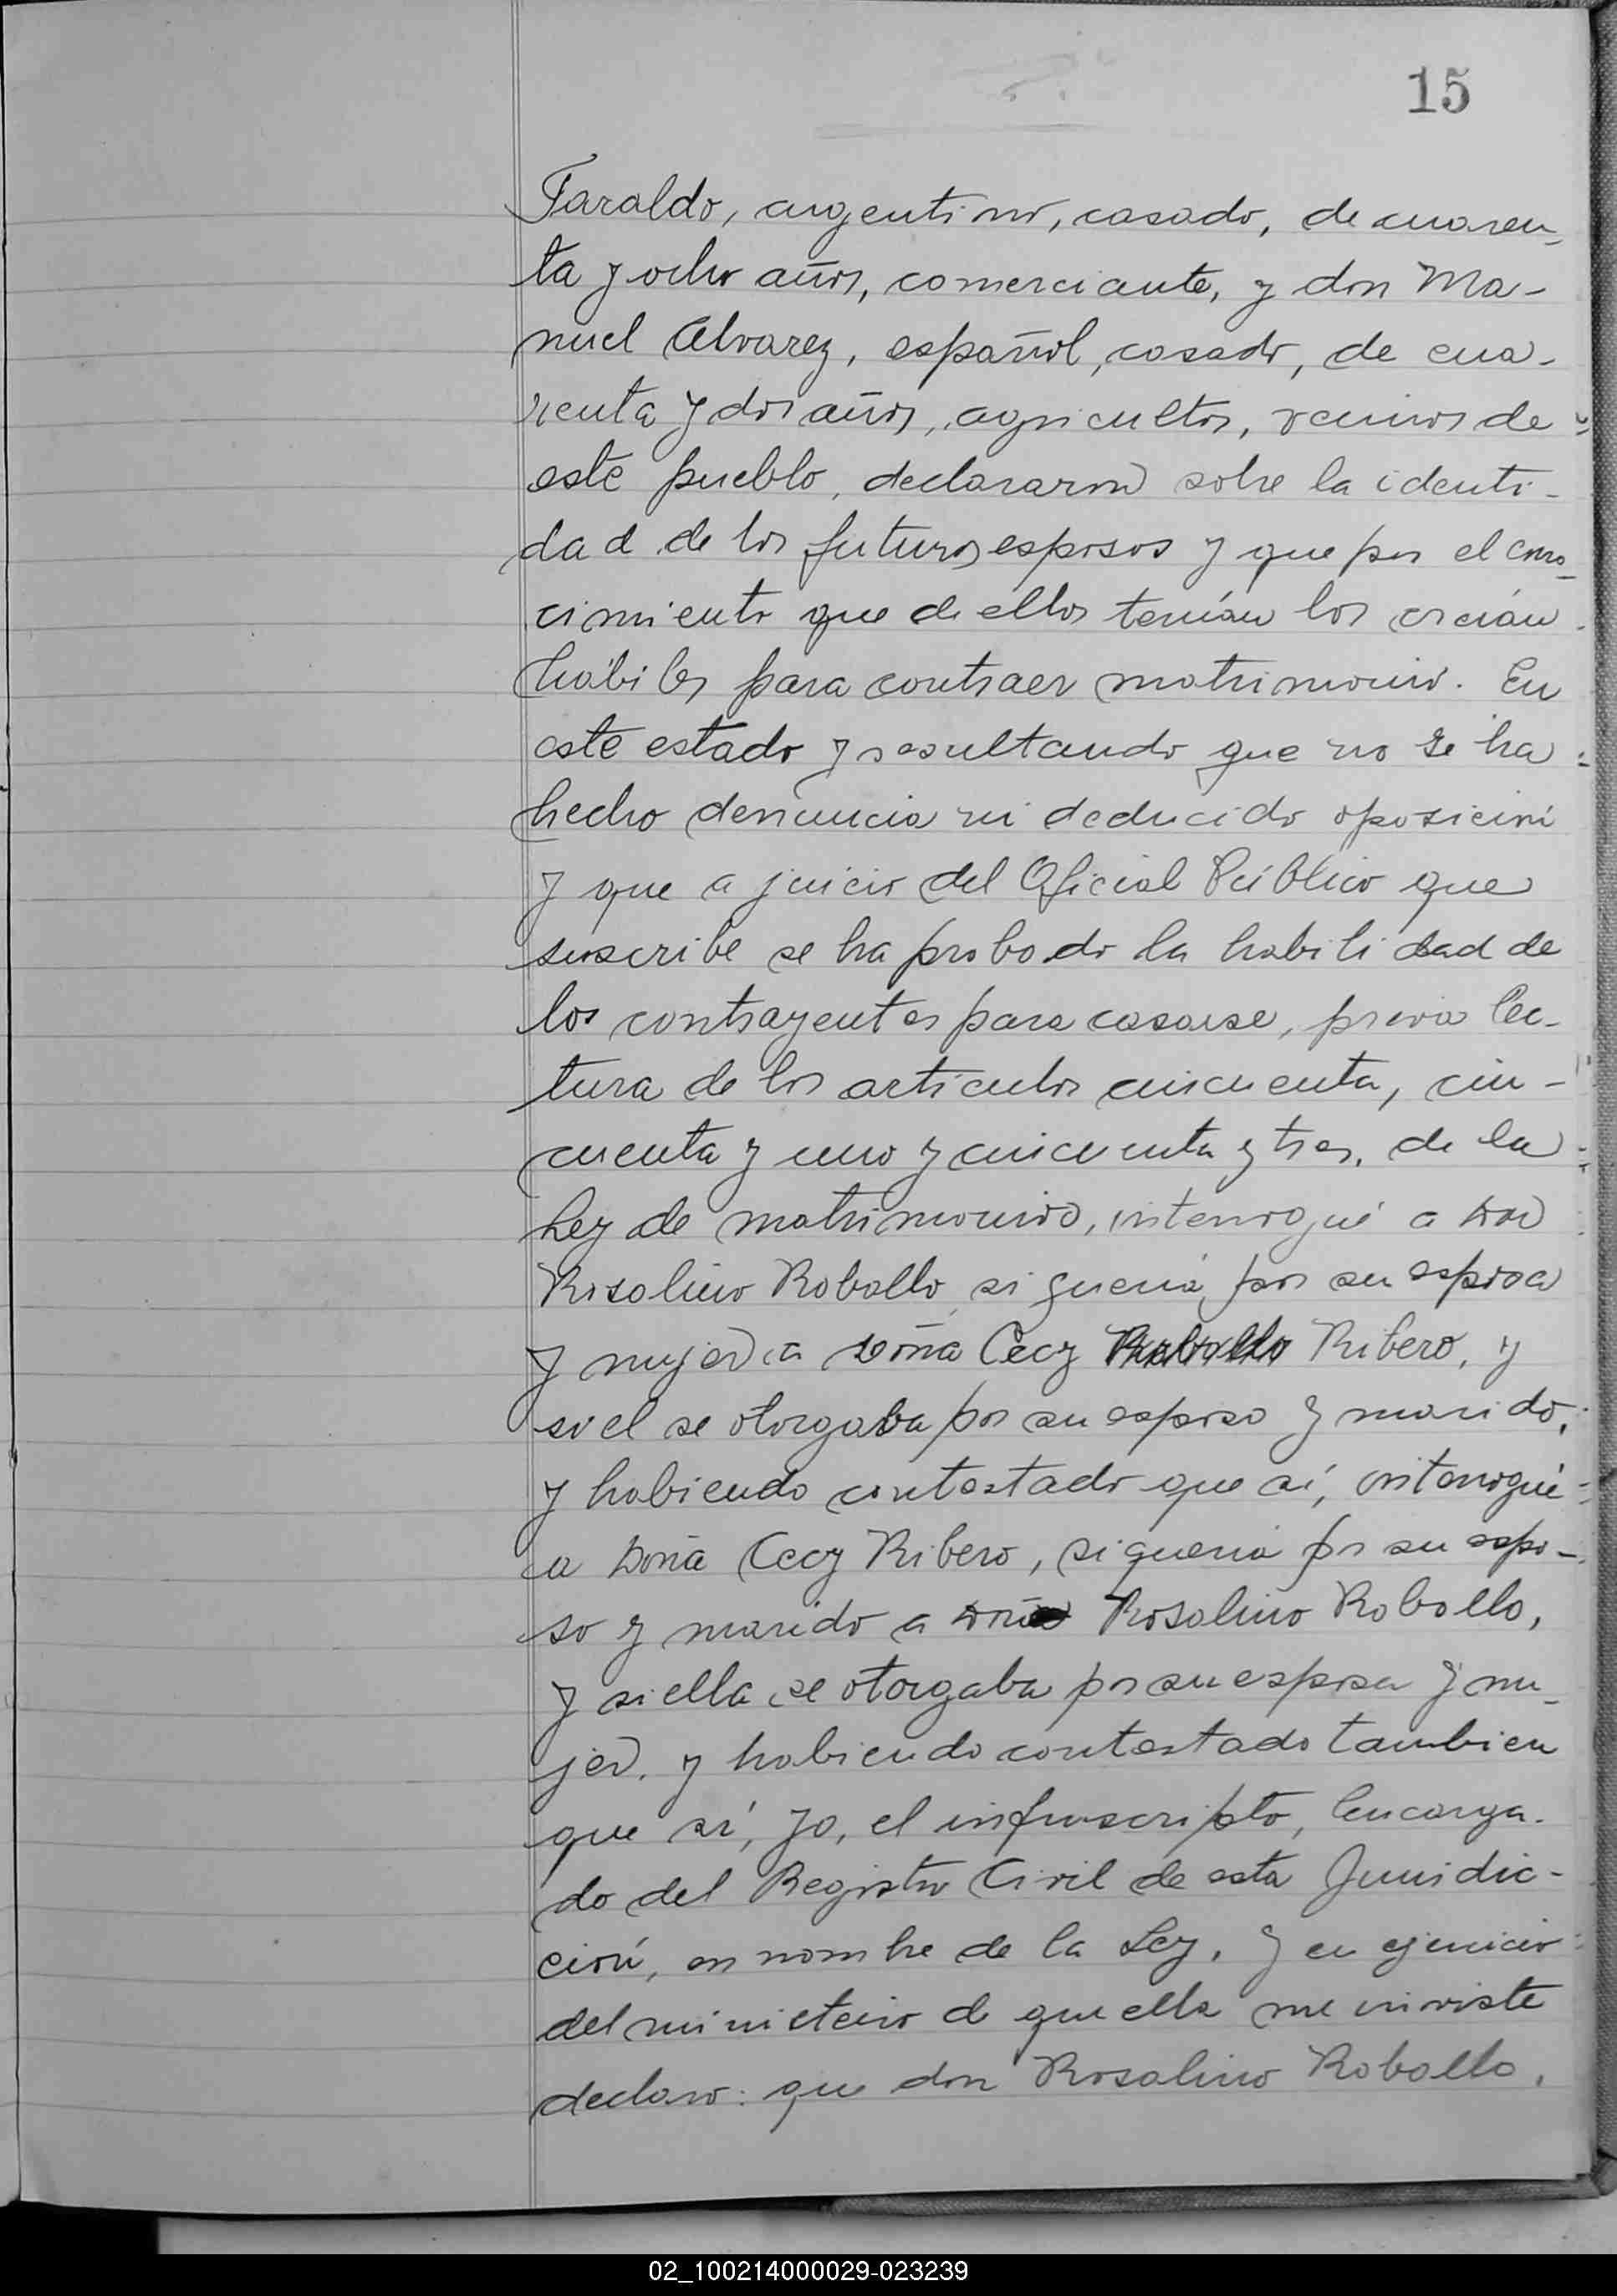 15
Faraldo, argentino, casado, de cuaren-
ta y ocho años, comerciante, y don Ma-
nuel Alvarez, español, casado, de cua-
renta y dos años, agricultor, vecinos de
este pueblo, declararon sobre la identi-
dad de los futuros esposos y que por el cono-
cimiento que de ellos tenían los creían
hábiles para contraer matrimonio. En
este estado y resultando que no se ha
hecho denuncia ni deducido oposición
y que a juicio del Oficial Público que
suscribe se ha probado la habilidad de
los contrayentes para casarse, previa lec-
tura de los artículos cincuenta, cin-
cuenta y uno y cincuenta y tres, de la
Ley de matrimonio, interrogué a Don
Rosolino Roballo si quería por su esposa
y mujer a Doña Cecy Ribero, y
si el se otorgaba por su esposo y marido,
y habiendo contestado que sí, interrogué
a Doña Cecy Ribero, si quería por su espo-
so y marido a Don Rosolino Roballo,
y si ella se otorgaba por su esposa y mu-
jer, y habiendo contestado tambien
que sí, yo, el infrascripto, Encarga-
do del Registro Civil de esta Jurisdic-
ción, en nombre de la Ley, y en ejercicio
del ministerio de que ella me inviste
declaro: que don Rosolino Roballo,
02_100214000029-023239